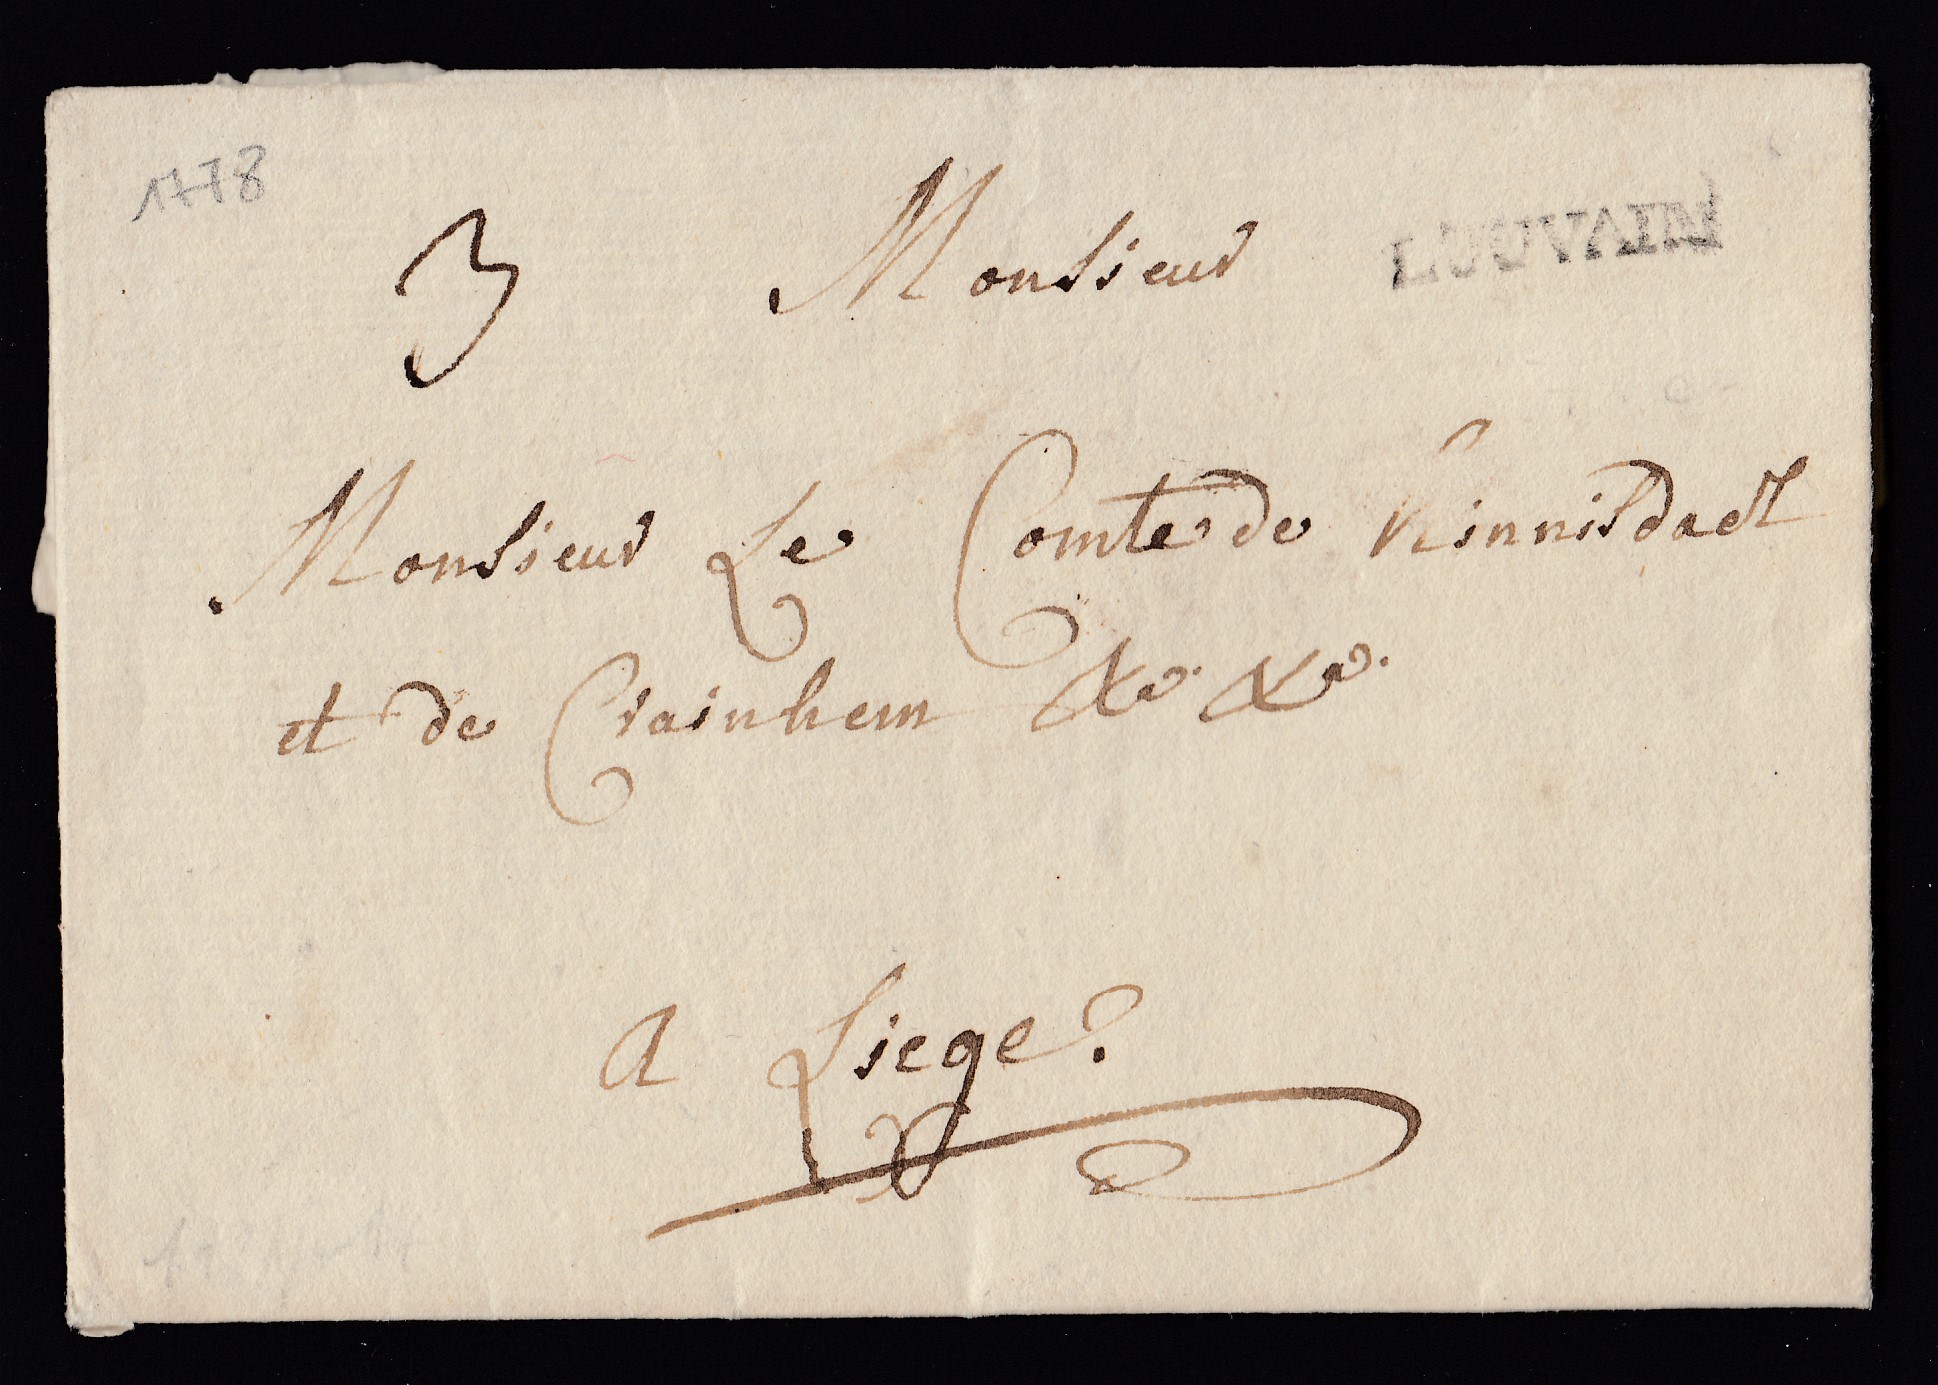 1778
3 Monsieur LOUVAIN
Monsieur Le Comte de Kinnisdael
et de Crainhem &a. &a.
a Liege.